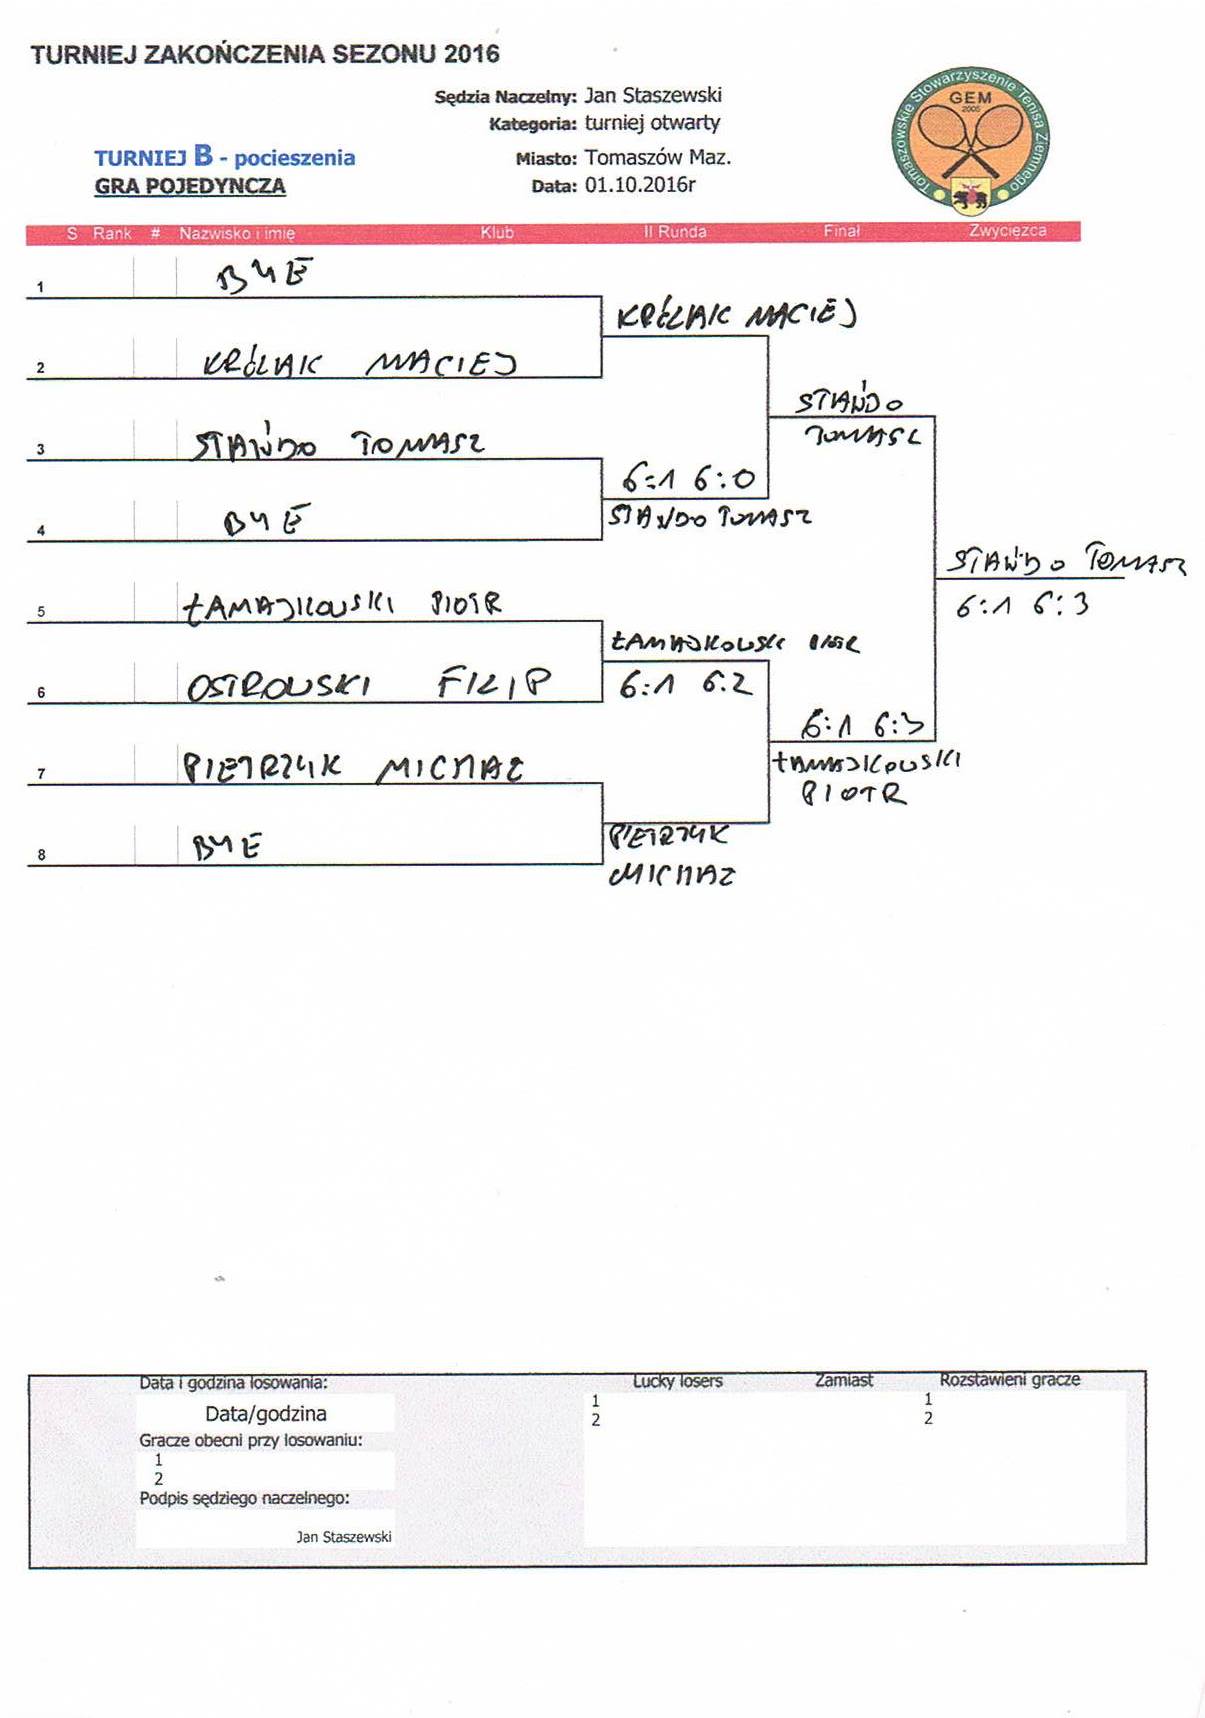 TURNIEJ ZAKOŃCZENIA SEZONU 2016
Sędzia Naczelny: Jan Staszewski
Kategoria: turniej otwarty
TURNIEJ B - pocieszenia
Miasto: Tomaszów Maz.
GRA POJEDYNCZA
Data: 01.10.2016r
Tomaszowskie Stowarzyszenie Tenisa Ziemnego
GEM
2005
S Rank # Nazwisko i imię Klub II Runda Finał Zwycięzca
1 BYE
KRÓLIAK MACIEJ
2 KRÓLIAK MACIEJ
STAŃDO
TOMASZ
3 STAŃDO TOMASZ
6:1 6:0
STAŃDO TOMASZ
4 BYE
STAŃDO TOMASZ
6:1 6:3
5 ŁAMAJKOWSKI PIOTR
ŁAMAJKOWSKI PIOTR
6:1 6:2
6 OSTROWSKI FILIP
6:1 6:3
ŁAMAJKOWSKI
PIOTR
7 PIETRZYK MICHAŁ
PIETRZYK
MICHAŁ
8 BYE
Data i godzina losowania: Lucky losers Zamiast Rozstawieni gracze
Data/godzina 1 1
2 2
Gracze obecni przy losowaniu:
1
2
Podpis sędziego naczelnego:
Jan Staszewski